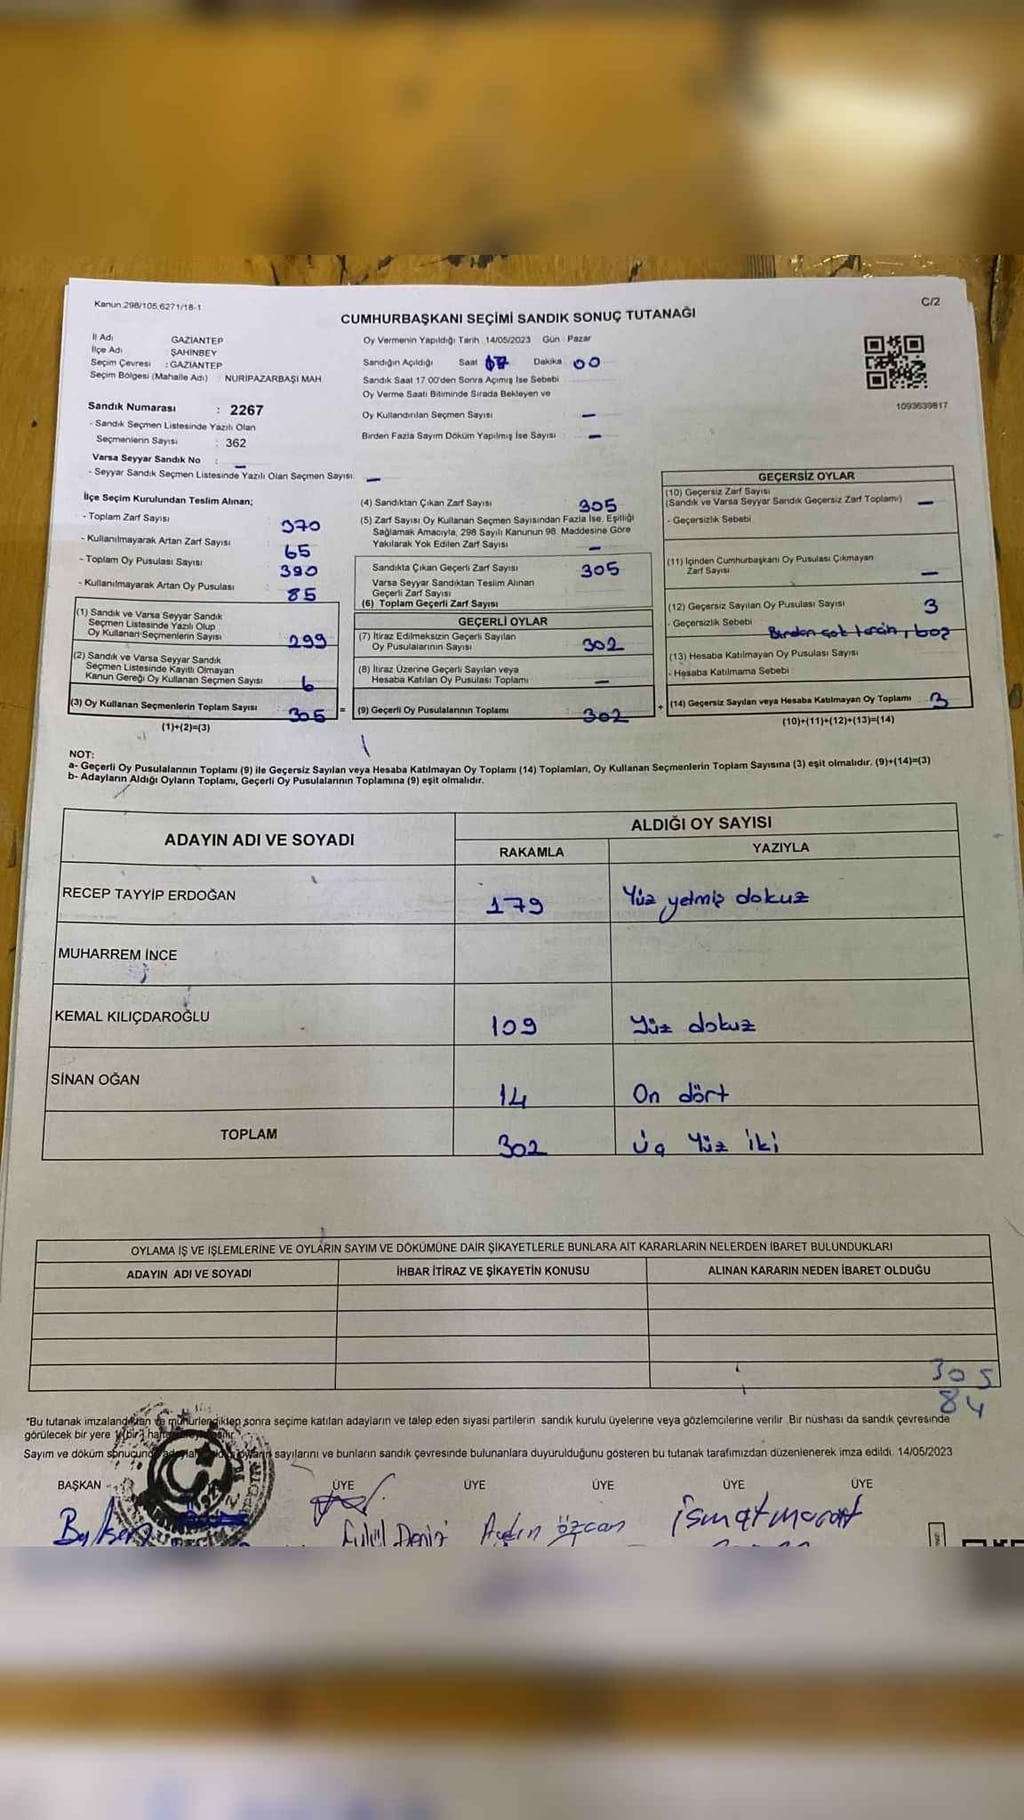 Kanun 298/105.6271/18-1
C/2
CUMHURBAŞKANI SEÇİMİ SANDIK SONUÇ TUTANAĞI
İl Adı GAZİANTEP
İlçe Adı ŞAHİNBEY
Seçim Çevresi : GAZİANTEP
Seçim Bölgesi (Mahalle Adı) NURİPAZARBAŞI MAH
Sandık Numarası : 2267
- Sandık Seçmen Listesinde Yazılı Olan
Seçmenlerin Sayısı : 362
Varsa Seyyar Sandık No : -
- Seyyar Sandık Seçmen Listesinde Yazılı Olan Seçmen Sayısı -
Oy Vermenin Yapıldığı Tarih 14/05/2023 Gün Pazar
Sandığın Açıldığı Saat 17 Dakika 00
Sandık Saat 17.00'den Sonra Açımış İse Sebebi
Oy Verme Saati Bitiminde Sırada Bekleyen ve
Oy Kullandırılan Seçmen Sayısı -
Birden Fazla Sayım Döküm Yapılmış İse Sayısı -
1093639817
İlçe Seçim Kurulundan Teslim Alınan;
- Toplam Zarf Sayısı 370
- Kullanılmayarak Artan Zarf Sayısı 65
- Toplam Oy Pusulası Sayısı 390
- Kullanılmayarak Artan Oy Pusulası 85
(1) Sandık ve Varsa Seyyar Sandık
Seçmen Listesinde Yazılı Olup
Oy Kullanan Seçmenlerin Sayısı 299
(2) Sandık ve Varsa Seyyar Sandık
Seçmen Listesinde Kayıtlı Olmayan
Kanun Gereği Oy Kullanan Seçmen Sayısı 6
(3) Oy Kullanan Seçmenlerin Toplam Sayısı 305 =
(1)+(2)=(3)
(4) Sandıktan Çıkan Zarf Sayısı 305
(5) Zarf Sayısı Oy Kullanan Seçmen Sayısından Fazla İse, Eşitliği
Sağlamak Amacıyla, 298 Sayılı Kanunun 98. Maddesine Göre
Yakılarak Yok Edilen Zarf Sayısı -
Sandıkta Çıkan Geçerli Zarf Sayısı 305
Varsa Seyyar Sandıktan Teslim Alınan
Geçerli Zarf Sayısı
(6) Toplam Geçerli Zarf Sayısı
GEÇERLİ OYLAR
(7) İtiraz Edilmeksizin Geçerli Sayılan
Oy Pusulalarının Sayısı 302
(8) İtiraz Üzerine Geçerli Sayılan veya
Hesaba Katılan Oy Pusulası Toplamı -
(9) Geçerli Oy Pusulalarının Toplamı 302 +
GEÇERSİZ OYLAR
(10) Geçersiz Zarf Sayısı
(Sandık ve Varsa Seyyar Sandık Geçersiz Zarf Toplamı) -
- Geçersizlik Sebebi
(11) İçinden Cumhurbaşkanı Oy Pusulası Çıkmayan
Zarf Sayısı -
(12) Geçersiz Sayılan Oy Pusulası Sayısı 3
- Geçersizlik Sebebi Birden çok tercih, boş
(13) Hesaba Katılmayan Oy Pusulası Sayısı
- Hesaba Katılmama Sebebi
(14) Geçersiz Sayılan veya Hesaba Katılmayan Oy Toplamı 3
(10)+(11)+(12)+(13)=(14)
NOT:
a- Geçerli Oy Pusulalarının Toplamı (9) ile Geçersiz Sayılan veya Hesaba Katılmayan Oy Toplamı (14) Toplamları, Oy Kullanan Seçmenlerin Toplam Sayısına (3) eşit olmalıdır. (9)+(14)=(3)
b- Adayların Aldığı Oyların Toplamı, Geçerli Oy Pusulalarının Toplamına (9) eşit olmalıdır.
ADAYIN ADI VE SOYADI ALDIĞI OY SAYISI
RAKAMLA YAZIYLA
RECEP TAYYİP ERDOĞAN 179 Yüz yetmiş dokuz
MUHARREM İNCE
KEMAL KILIÇDAROĞLU 109 Yüz dokuz
SİNAN OĞAN 14 On dört
TOPLAM 302 Üç Yüz iki
OYLAMA İŞ VE İŞLEMLERİNE VE OYLARIN SAYIM VE DÖKÜMÜNE DAİR ŞİKAYETLERLE BUNLARA AİT KARARLARIN NELERDEN İBARET BULUNDUKLARI
ADAYIN ADI VE SOYADI İHBAR İTİRAZ VE ŞİKAYETİN KONUSU ALINAN KARARIN NEDEN İBARET OLDUĞU
305
84
*Bu tutanak imzalandıktan ve mühürlendikten sonra seçime katılan adayların ve talep eden siyasi partilerin sandık kurulu üyelerine veya gözlemcilerine verilir. Bir nüshası da sandık çevresinde
görülecek bir yere
Sayım ve döküm sonucunda sayılarını ve bunların sandık çevresinde bulunanlara duyurulduğunu gösteren bu tutanak tarafımızdan düzenlenerek imza edildi. 14/05/2023
BAŞKAN ÜYE ÜYE ÜYE ÜYE ÜYE
Eylül Deniz Aydın özcan ismat